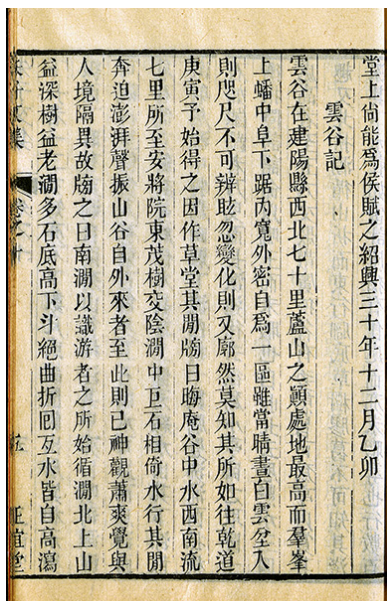 堂上尙能爲侯賦之紹興三十年十二月乙卯
雲谷記
雲谷在建陽縣西北七十里蘆山之顚處地最高而羣峯
上蟠中阜下踞內寬外密自爲一區雖當晴晝白雲坌入
則咫尺不可辨眩忽變化則又廓然莫知其所如往乾道
庚寅予始得之因作草堂其閒牓曰晦庵谷中水西南流
七里所至安將院東茂樹交陰澗中巨石相倚水行其閒
奔迫澎湃聲振山谷自外來者至此則已神觀蕭爽覺與
人境隔異故牓之曰南澗以識游者之所始循澗北上山
益深樹益老澗多石底高下斗絕曲折回互水皆自高瀉
集
卷之十
堂